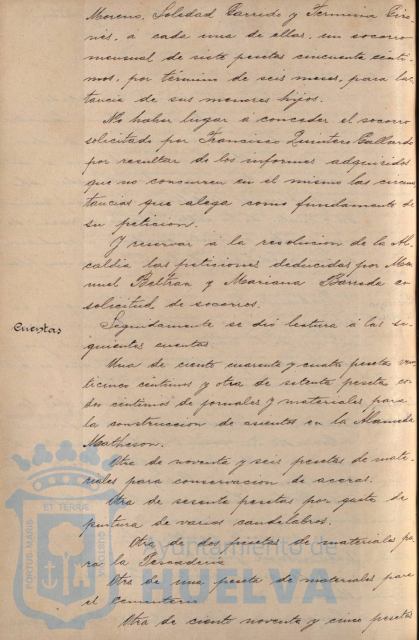 Moreno, Soledad Garrido y Fermina Cire-
nis, a cada una de ellas, un socorro
mensual de siete pesetas cincuenta cénti-
mos, por término de seis meses, para lac-
tancia de sus menores hijos.
No haber lugar á conceder el socorro
solicitado por Francisco Quintero Gallardo
por resultar de los informes adquiridos
que no concurren en el mismo las circuns
tancias que alega como fundamento de
su peticion.
Y reservar á la resolucion de la Al-
caldía las peticiones deducidas por Ma-
nuel Beltran y Mariana Barreda en
solicitud de socorros.
Cuentas
Seguidamente se dió lectura á las si-
guientes cuentas
Una de ciento cuarenta y cuatro pesetas vein-
ticinco centimos y otra de setenta pesetas
dos centimos de jornales y materiales para
la construccion de asientos en la Alameda
Matheson.
Otra de noventa y seis pesetas de mate-
riales para conservacion de aceras.
Otra de sesenta pesetas por gasto de
pintura de varios candelabros.
Otra de dos pesetas de materiales pa-
ra la Pescaderia
Otra de una peseta de materiales para
el cementerio
Otra de ciento noventa y cinco pesetas
PORTUS MARIS
ET TERRÆ
CUSTODIA
Ayuntamiento de
HUELVA